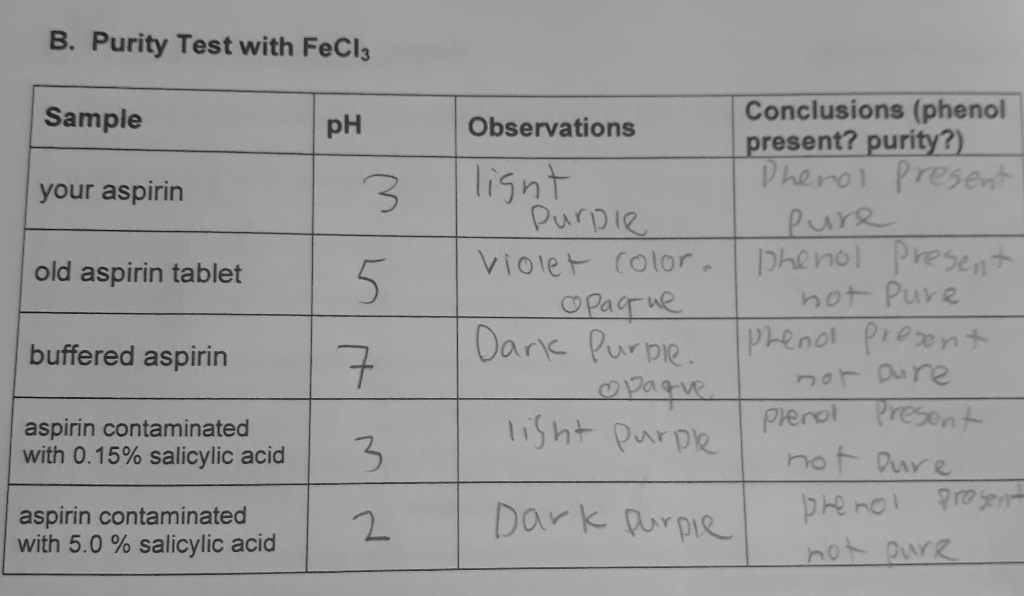 B. Purity Test with FeCl₃
Sample pH Observations Conclusions (phenol present? purity?)
your aspirin 3 light Purple Phenol Present Pure
old aspirin tablet 5 Violet color. opaque phenol Present not Pure
buffered aspirin 7 Dark Purple. opaque phenol Present not pure
aspirin contaminated with 0.15% salicylic acid 3 light purple phenol Present not pure
aspirin contaminated with 5.0 % salicylic acid 2 Dark purple phenol present not pure